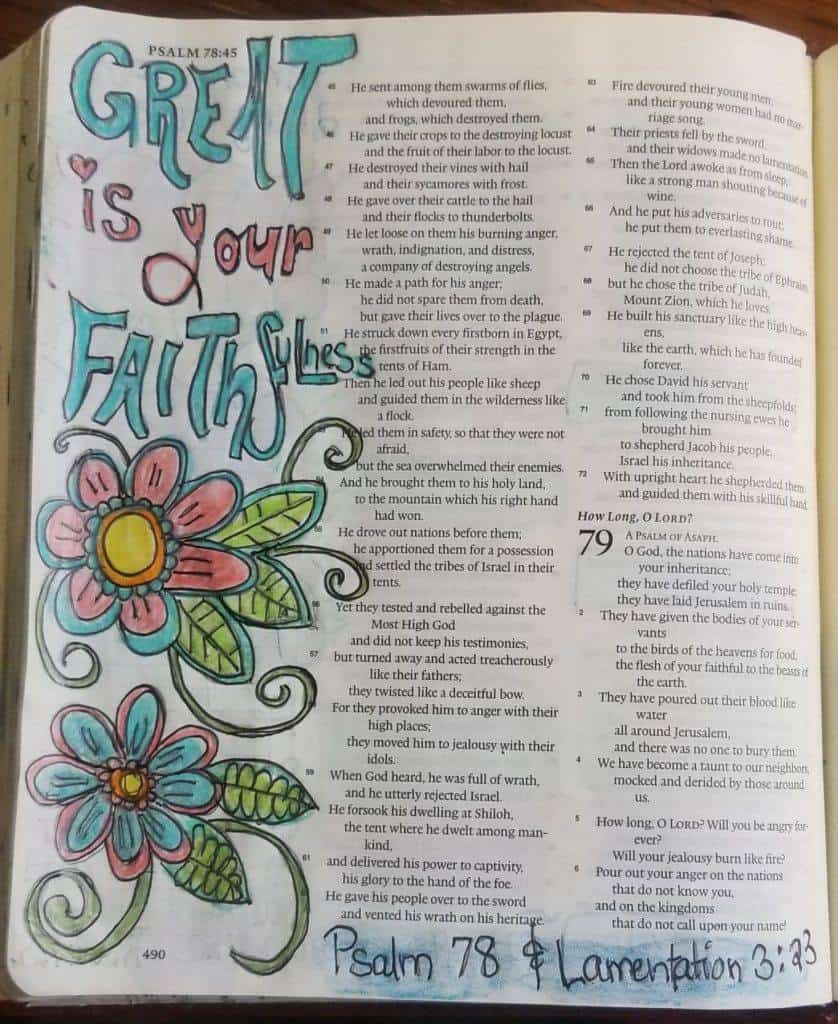 PSALM 78:45
GREAT
is your
FAITHfulness
45 He sent among them swarms of flies,
which devoured them,
and frogs, which destroyed them.
46 He gave their crops to the destroying locust
and the fruit of their labor to the locust.
47 He destroyed their vines with hail
and their sycamores with frost.
48 He gave over their cattle to the hail
and their flocks to thunderbolts.
49 He let loose on them his burning anger,
wrath, indignation, and distress,
a company of destroying angels.
50 He made a path for his anger;
he did not spare them from death,
but gave their lives over to the plague.
51 He struck down every firstborn in Egypt,
the firstfruits of their strength in the
tents of Ham.
Then he led out his people like sheep
and guided them in the wilderness like
a flock.
He led them in safety, so that they were not
afraid,
but the sea overwhelmed their enemies.
54 And he brought them to his holy land,
to the mountain which his right hand
had won.
55 He drove out nations before them;
he apportioned them for a possession
and settled the tribes of Israel in their
tents.
56 Yet they tested and rebelled against the
Most High God
and did not keep his testimonies,
57 but turned away and acted treacherously
like their fathers;
they twisted like a deceitful bow.
For they provoked him to anger with their
high places;
they moved him to jealousy with their
idols.
59 When God heard, he was full of wrath,
and he utterly rejected Israel.
He forsook his dwelling at Shiloh,
the tent where he dwelt among man-
kind,
61 and delivered his power to captivity,
his glory to the hand of the foe.
He gave his people over to the sword
and vented his wrath on his heritage.
63 Fire devoured their young men,
and their young women had no mar-
riage song.
64 Their priests fell by the sword,
and their widows made no lamentation.
65 Then the Lord awoke as from sleep,
like a strong man shouting because of
wine.
66 And he put his adversaries to rout;
he put them to everlasting shame.
67 He rejected the tent of Joseph;
he did not choose the tribe of Ephraim,
68 but he chose the tribe of Judah,
Mount Zion, which he loves.
69 He built his sanctuary like the high heav-
ens,
like the earth, which he has founded
forever.
70 He chose David his servant
and took him from the sheepfolds;
71 from following the nursing ewes he
brought him
to shepherd Jacob his people,
Israel his inheritance.
72 With upright heart he shepherded them
and guided them with his skillful hand.
How Long, O LORD?
79 A PSALM OF ASAPH.
O God, the nations have come into
your inheritance;
they have defiled your holy temple;
they have laid Jerusalem in ruins.
2 They have given the bodies of your ser-
vants
to the birds of the heavens for food,
the flesh of your faithful to the beasts of
the earth.
3 They have poured out their blood like
water
all around Jerusalem,
and there was no one to bury them.
4 We have become a taunt to our neighbors,
mocked and derided by those around
us.
5 How long, O LORD? Will you be angry for-
ever?
Will your jealousy burn like fire?
6 Pour out your anger on the nations
that do not know you,
and on the kingdoms
that do not call upon your name!
490
Psalm 78 & Lamentation 3:23